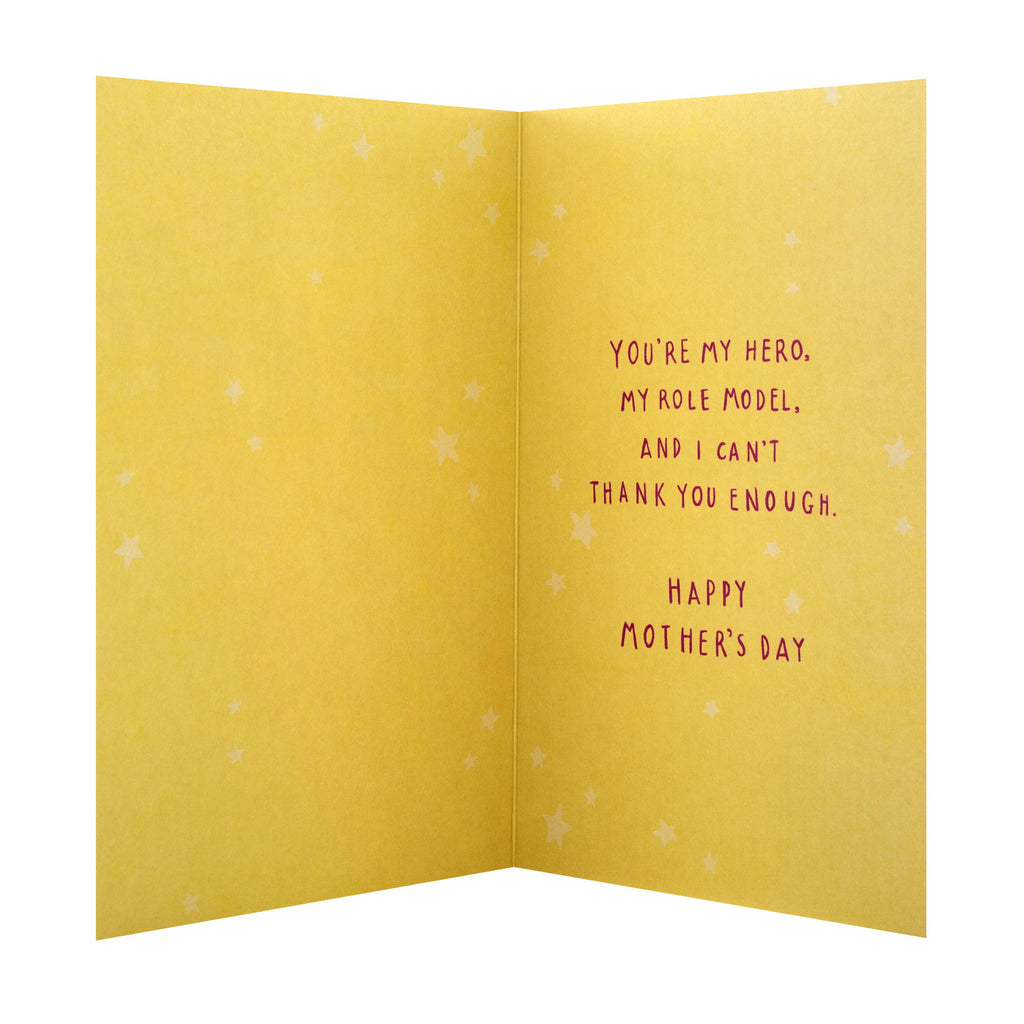 YOU'RE MY HERO,
MY ROLE MODEL,
AND I CAN'T
THANK YOU ENOUGH.
HAPPY
MOTHER'S DAY